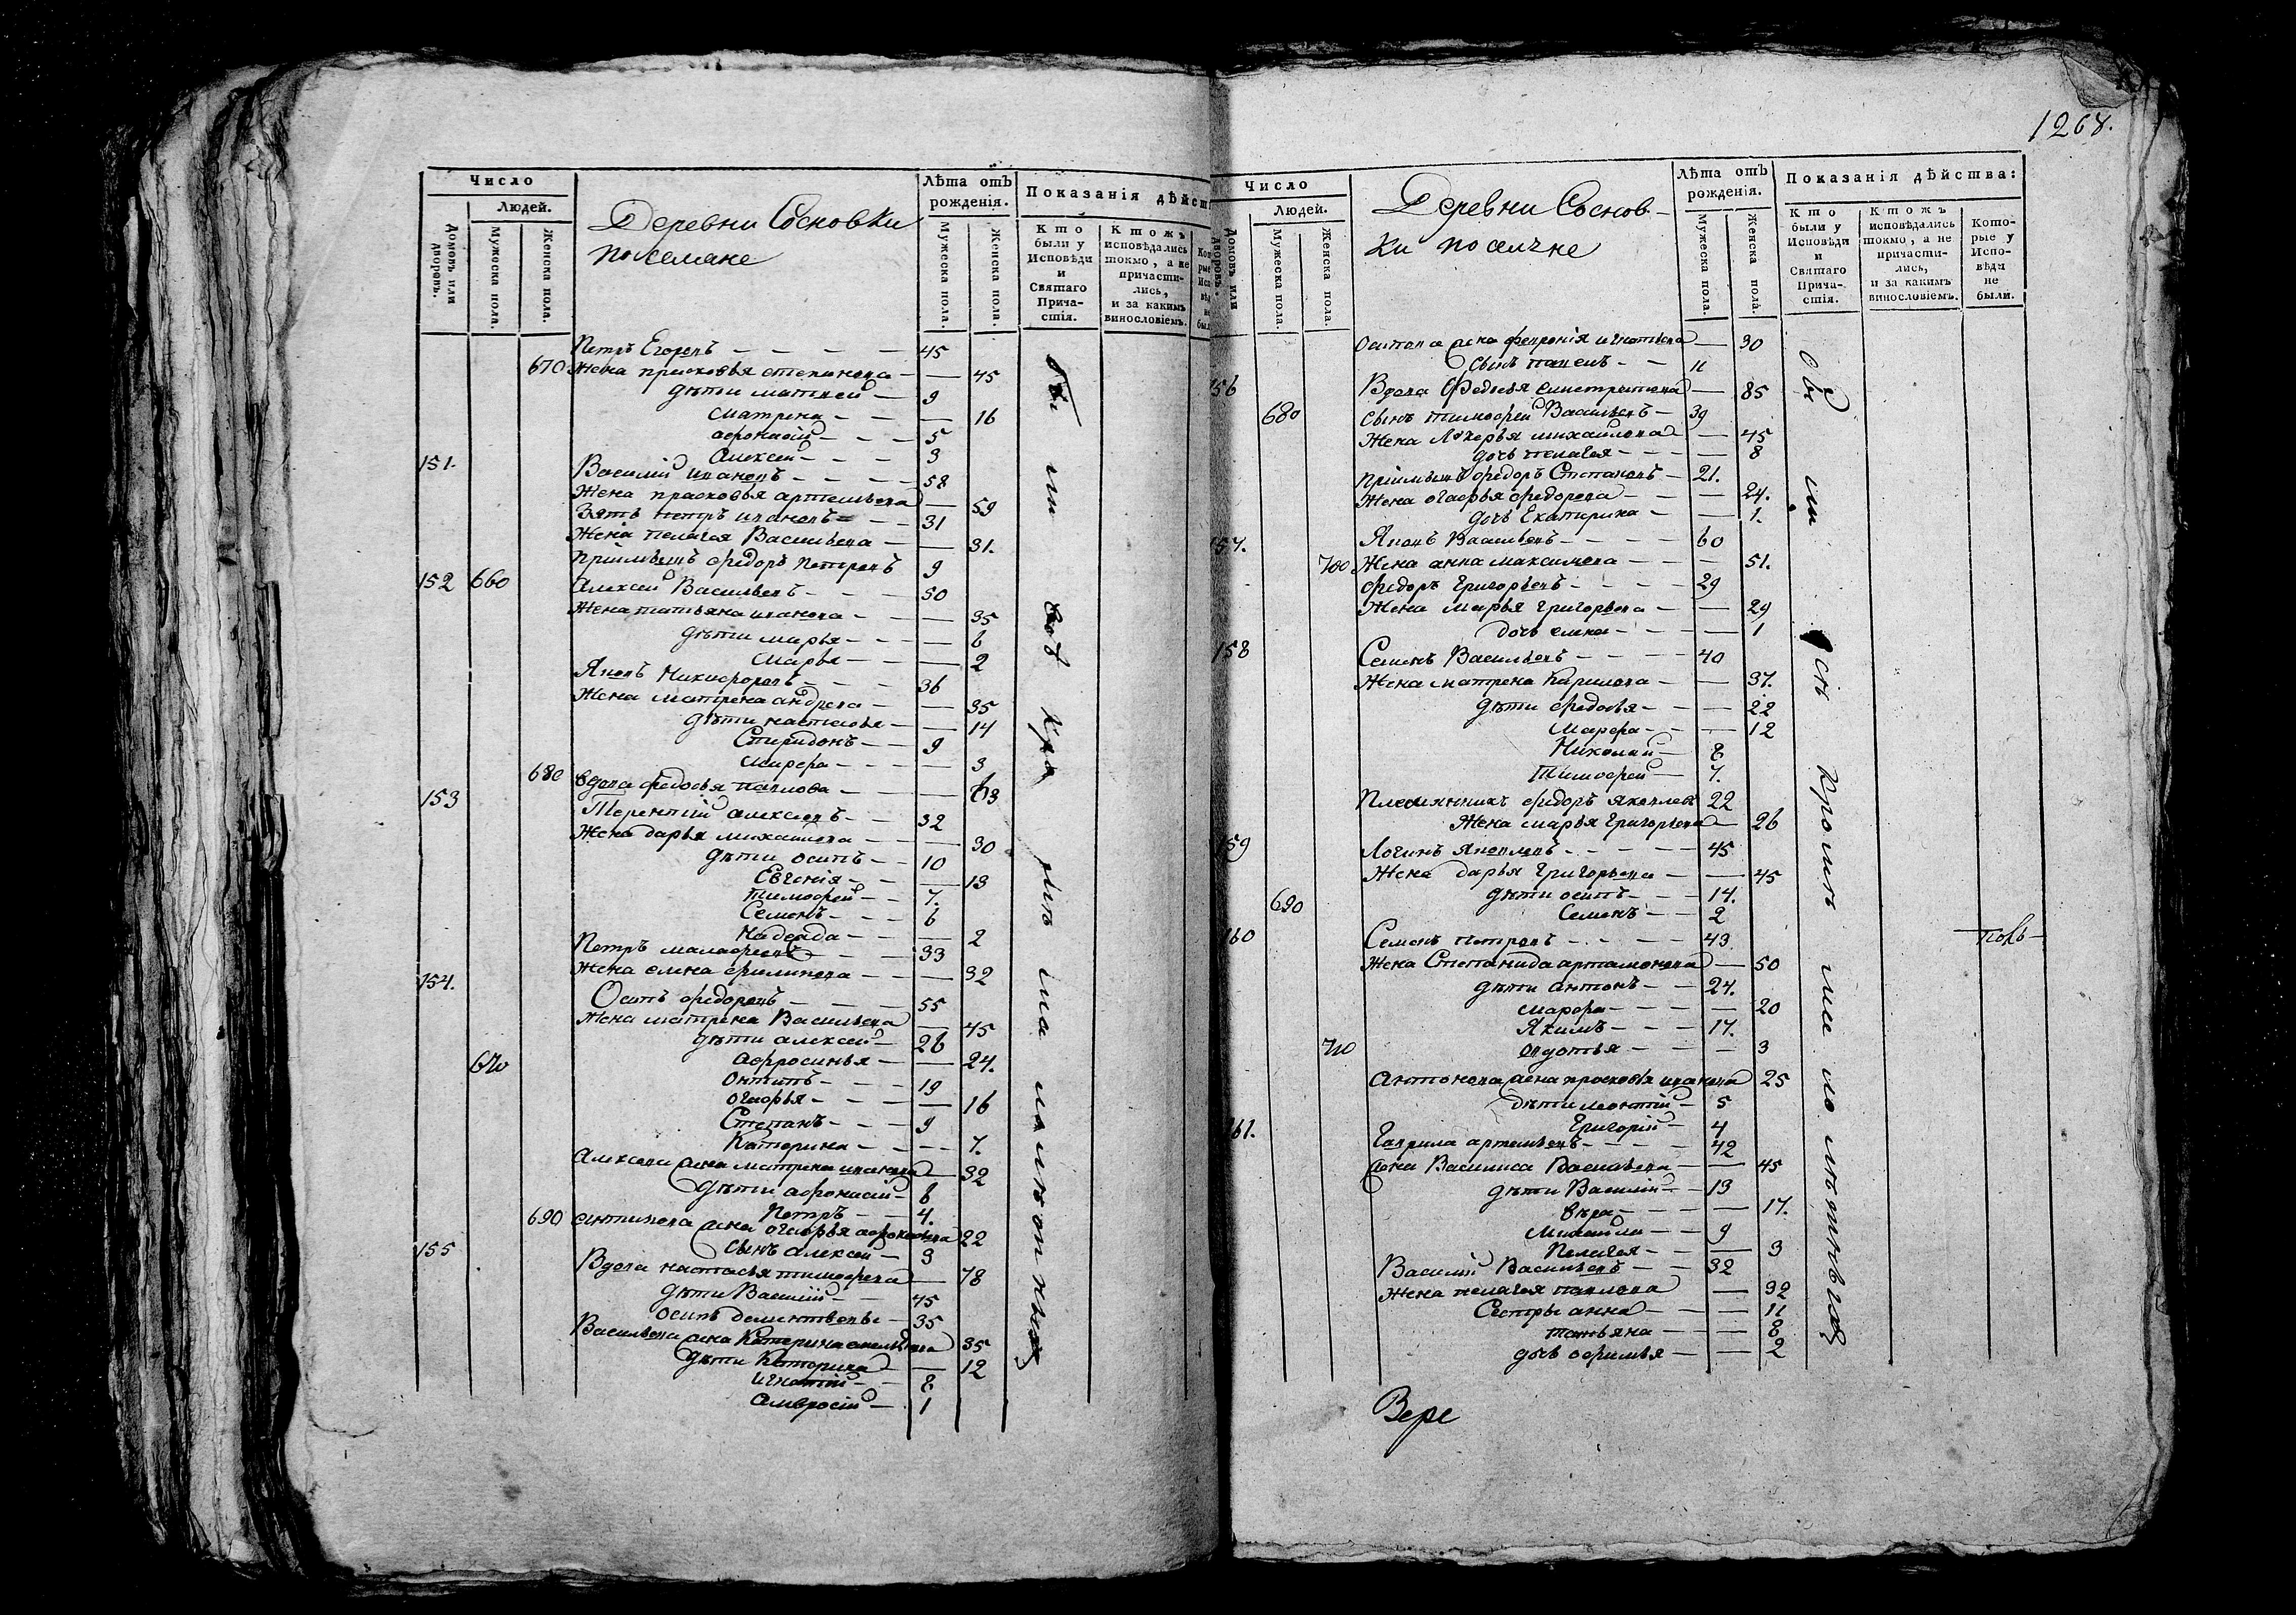 Число
Людей.
Домовъ или дворовъ.
Мужеска пола.
Женска пола.
Деревни Сосновки
поселяне
Лѣта отъ рожденія.
Мужеска пола.
Женска пола.
Показанія дѣйст
Кто были у Исповѣди и Святаго Прича- стія.
Кто жъ исповѣдались токмо, а не причасти- лись, и за какимъ винословіемъ.
Петръ Егоровъ — 45
670 Жена прасковья степанова — 45
дѣти матвей — 9
матрена — 16
афонасій — 5
Алексей — 3
151. Василій ивановъ — 58
Жена прасковья артемьева — 59
Зять петръ ивановъ — 31
Жена пелагея Васильева — 31.
пріимышъ федоръ петровъ 9
152 660 Алексей Васильевъ — 50
Жена татьяна иванова — 35
дѣти марья — 6
Марья — 2
Яковъ Никифоровъ — 36
Жена матрена андреева — 35
дѣти настасья — 14
Спиридонъ — 9
Марфа — 3
680 вдова федосья павлова — 63
153 Терентій алексеевъ — 32
Жена дарья михайлова — 30
дѣти осипъ — 10
Евгенія — 13
Тимофей — 7.
Семенъ — 6
Надежда — 2
Петръ малафеевъ — 33
Жена елена филипова — 32
154. Осипъ федоровъ — 55
Жена матрена Васильева 45
дѣти алексей — 26
афросинья — 24.
670 Онтипъ — 19
огафья — 16
Степанъ — 9
Катерина — 7.
Алексева жена матрена иванова 32
дѣти афонасій — 6
Петръ — 4.
690 антипова жена огафья афонасьева 22
155 сынъ алексей — 3
Вдова настасья тимофеева — 78
дѣти Василій — 45
осипъ дементьевы — 35
Васильева жена Катерина 35
дѣти Катерина — 12
игнатій — 8
Амвросій — 1
1268.
Число
Людей.
Домовъ или дворовъ.
Мужеска пола.
Женска пола.
Деревни Соснов-
ки поселяне
Лѣта отъ рожденія.
Мужеска пола.
Женска пола.
Показанія дѣйства:
Кто были у Исповѣди и Святаго Прича- стія.
Кто жъ исповѣдались токмо, а не причасти- лись, и за какимъ винословіемъ.
Кото- рые у Испо- вѣди не были.
Осипова жена февронія игнатьева — 30
сынъ павелъ — 11
156 Вдова Федосья — 85
680 сынъ тимофей Васильевъ — 39
Жена михайлова — 45
дочь пелагея — 8
пріимышъ федоръ Степановъ — 21.
Жена огафья федорова — 24.
дочь Екатерина — 1.
157. Яковъ Васильевъ — 60
700 Жена анна максимова — 51.
федоръ Григорьевъ — 29
Жена марья григорьева — 29
дочь елена — 1
158 Семенъ Васильевъ — 40
Жена матрена Кирилова — 37.
дѣти федосья — 22
Марфа — 12
Николай — 8
Тимофей — 7.
Племянникъ федоръ яковлевъ 22
Жена марья григорьева — 26
159 Логинъ яковлевъ — 45
Жена дарья Григорьева — 45
690 дѣти осипъ — 14.
Семенъ — 2
160 Семенъ петровъ — 43
Жена Степанида артамонова — 50
дѣти антонъ — 24.
марфа — 20
Якимъ — 17.
710 овдотья — 3
антонова жена прасковья иванова 25
дѣти леонтій — 5
Григорій — 4
161. Гаврила артемьевъ — 42
жена Василиса Васильева — 45
дѣти Василій — 13
вѣра — 17.
Михайла — 9
Пелагея — 3
Василій Васильевъ — 32
Жена пелагея павлова — 32
Сестры анна — 11
татьяна — 8
дочь офимья — 2